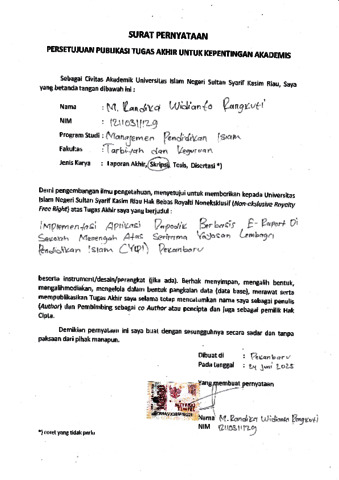 SURAT PERNYATAAN
PERSETUJUAN PUBLIKASI TUGAS AKHIR UNTUK KEPENTINGAN AKADEMIS
Sebagai Civitas Akademik Universitas Islam Negeri Sultan Syarif Kasim Riau, Saya
yang bertanda tangan dibawah ini :
Nama : M. Randika Widianto Rangkuti
NIM : 12110311729
Program Studi : Manajemen Pendidikan Islam
Fakultas : Tarbiyah dan Keguruan
Jenis Karya : Laporan Akhir, Skripsi, Tesis, Disertasi *)
Demi pengembangan ilmu pengetahuan, menyetujui untuk memberikan kepada Universitas
Islam Negeri Sultan Syarif Kasim Riau Hak Bebas Royalti Noneksklusif (Non-ekslusive Royalty
Free Right) atas Tugas Akhir saya yang berjudul :
Implementasi Aplikasi Dapodik Berbasis E-Raport Di
Sekolah Menengah Atas Serirama Yayasan Lembaga
Pendidikan Islam (YLPI) Pekanbaru
beserta instrumen/desain/perangkat (jika ada). Berhak menyimpan, mengalih bentuk,
mengalihmediakan, mengelola dalam bentuk pangkalan data (data base), merawat serta
mempublikasikan Tugas Akhir saya selama tetap mencantumkan nama saya sebagai penulis
(Author) dan Pembimbing sebagai co Author atau pencipta dan juga sebagai pemilik Hak
Cipta.
Demikian pernyataan ini saya buat dengan sesungguhnya secara sadar dan tanpa
paksaan dari pihak manapun.
Dibuat di : Pekanbaru
Pada tanggal : 24 Juni 2025
Yang membuat pernyataan
METERAI
TEMPEL
Nama M. Randika Widianto Rangkuti
NIM 12110311729
*) coret yang tidak perlu